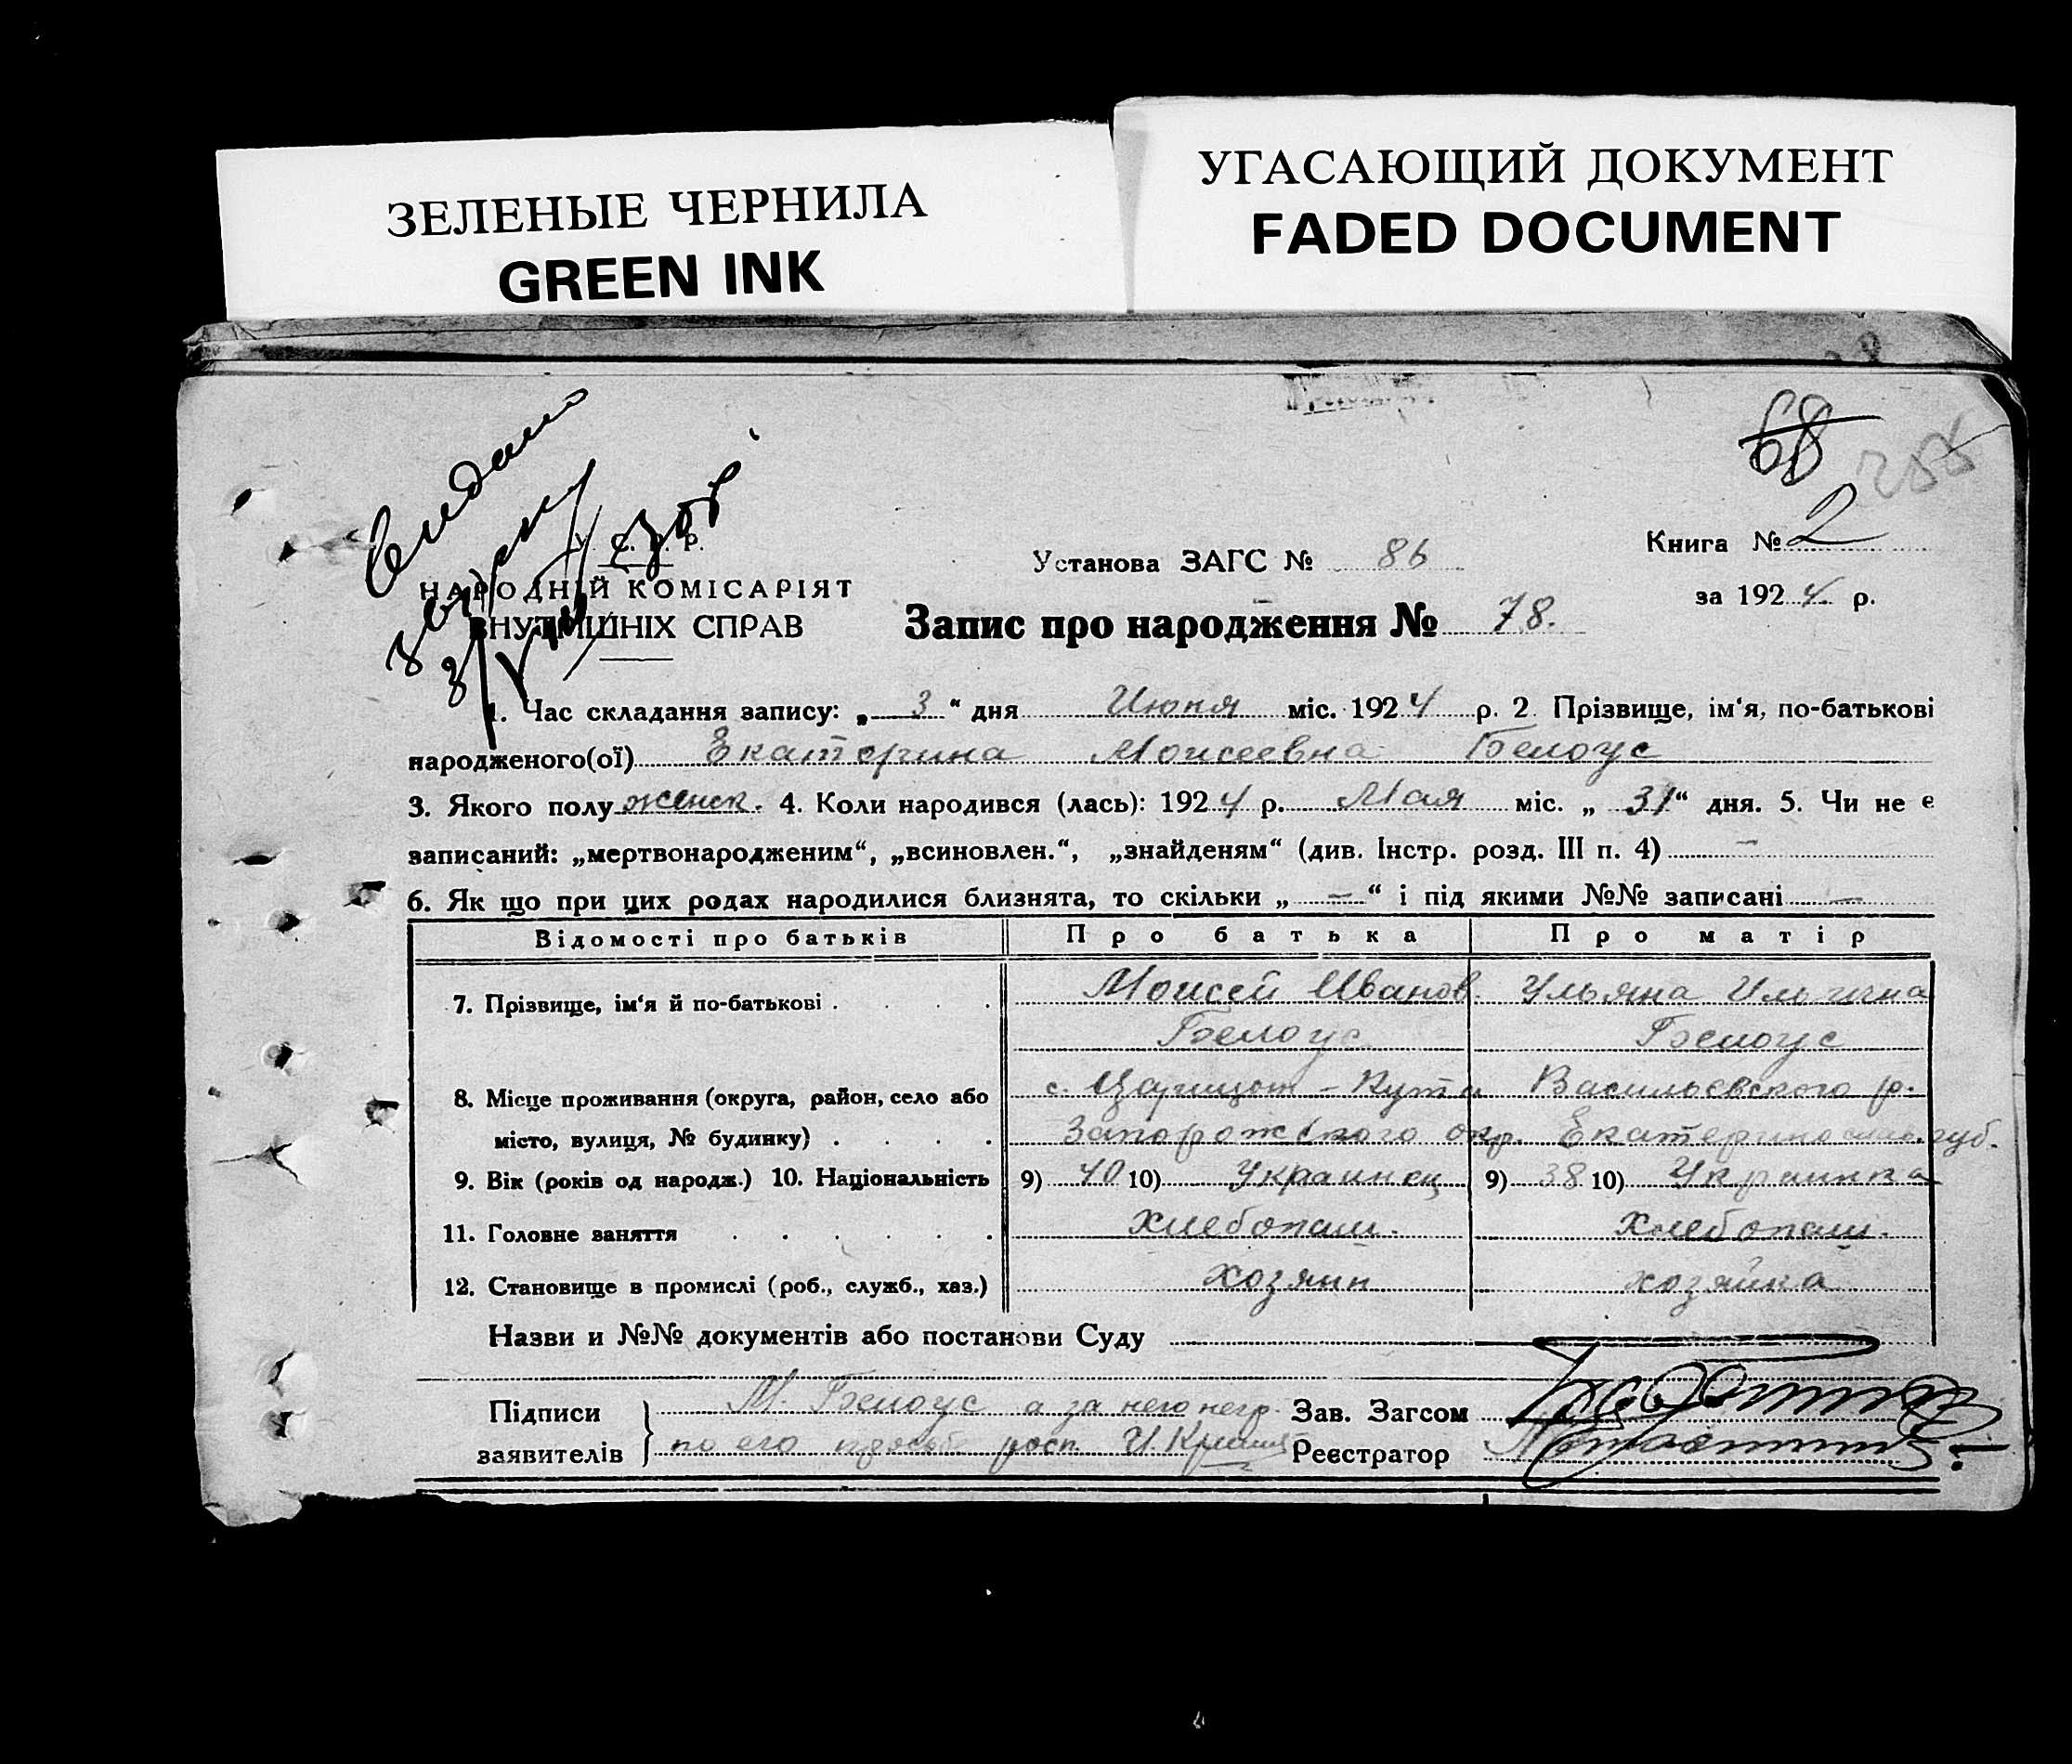 ЗЕЛЕНЫЕ ЧЕРНИЛА
GREEN INK
УГАСАЮЩИЙ ДОКУМЕНТ
FADED DOCUMENT
68
255
Видано
У. С. Р. Р.
НАРОДНІЙ КОМІСАРІЯТ
ВНУТРІШНІХ СПРАВ
Установа ЗАГС № 86
Книга № 2
за 1924 р.
Запис про народження № 78.
1. Час складання запису: „3“ дня Июня міс. 1924 р. 2. Прізвище, ім‘я, по-батькові
народженого(ої) Екатерина Моисеевна Белоус
3. Якого полу женск. 4. Коли народився (лась): 1924 р. Мая міс. „31“ дня. 5. Чи не є
записаний: „мертвонародженим“, „всиновлен.“, „знайденям“ (див. Інстр. розд. III п. 4) –
6. Як що при цих родах народилися близнята, то скільки „–“ і під якими №№ записані –
Відомості про батьків Про батька Про матір
7. Прізвище, ім‘я й по-батькові . . . Моисей Иванов. Ульяна Ильична
Белоус Белоус
8. Місце проживання (округа, район, село або с. Царицын-Кута Васильевского р.
місто, вулиця, № будинку) . . . . Запорожского окр. Екатеринослав. губ.
9. Вік (років од народж.) 10. Національність 9) 40 10) Украинец 9) 38 10) Украинка
11. Головне заняття . . . . . . Хлебопаш. Хлебопаш.
12. Становище в промислі (роб., служб., хаз.) хозяин хозяйка
Назви и №№ документів або постанови Суду
Підписи М. Белоус а за него негр. Зав. Загсом
заявителів по его просьб росп. И. Реєстратор